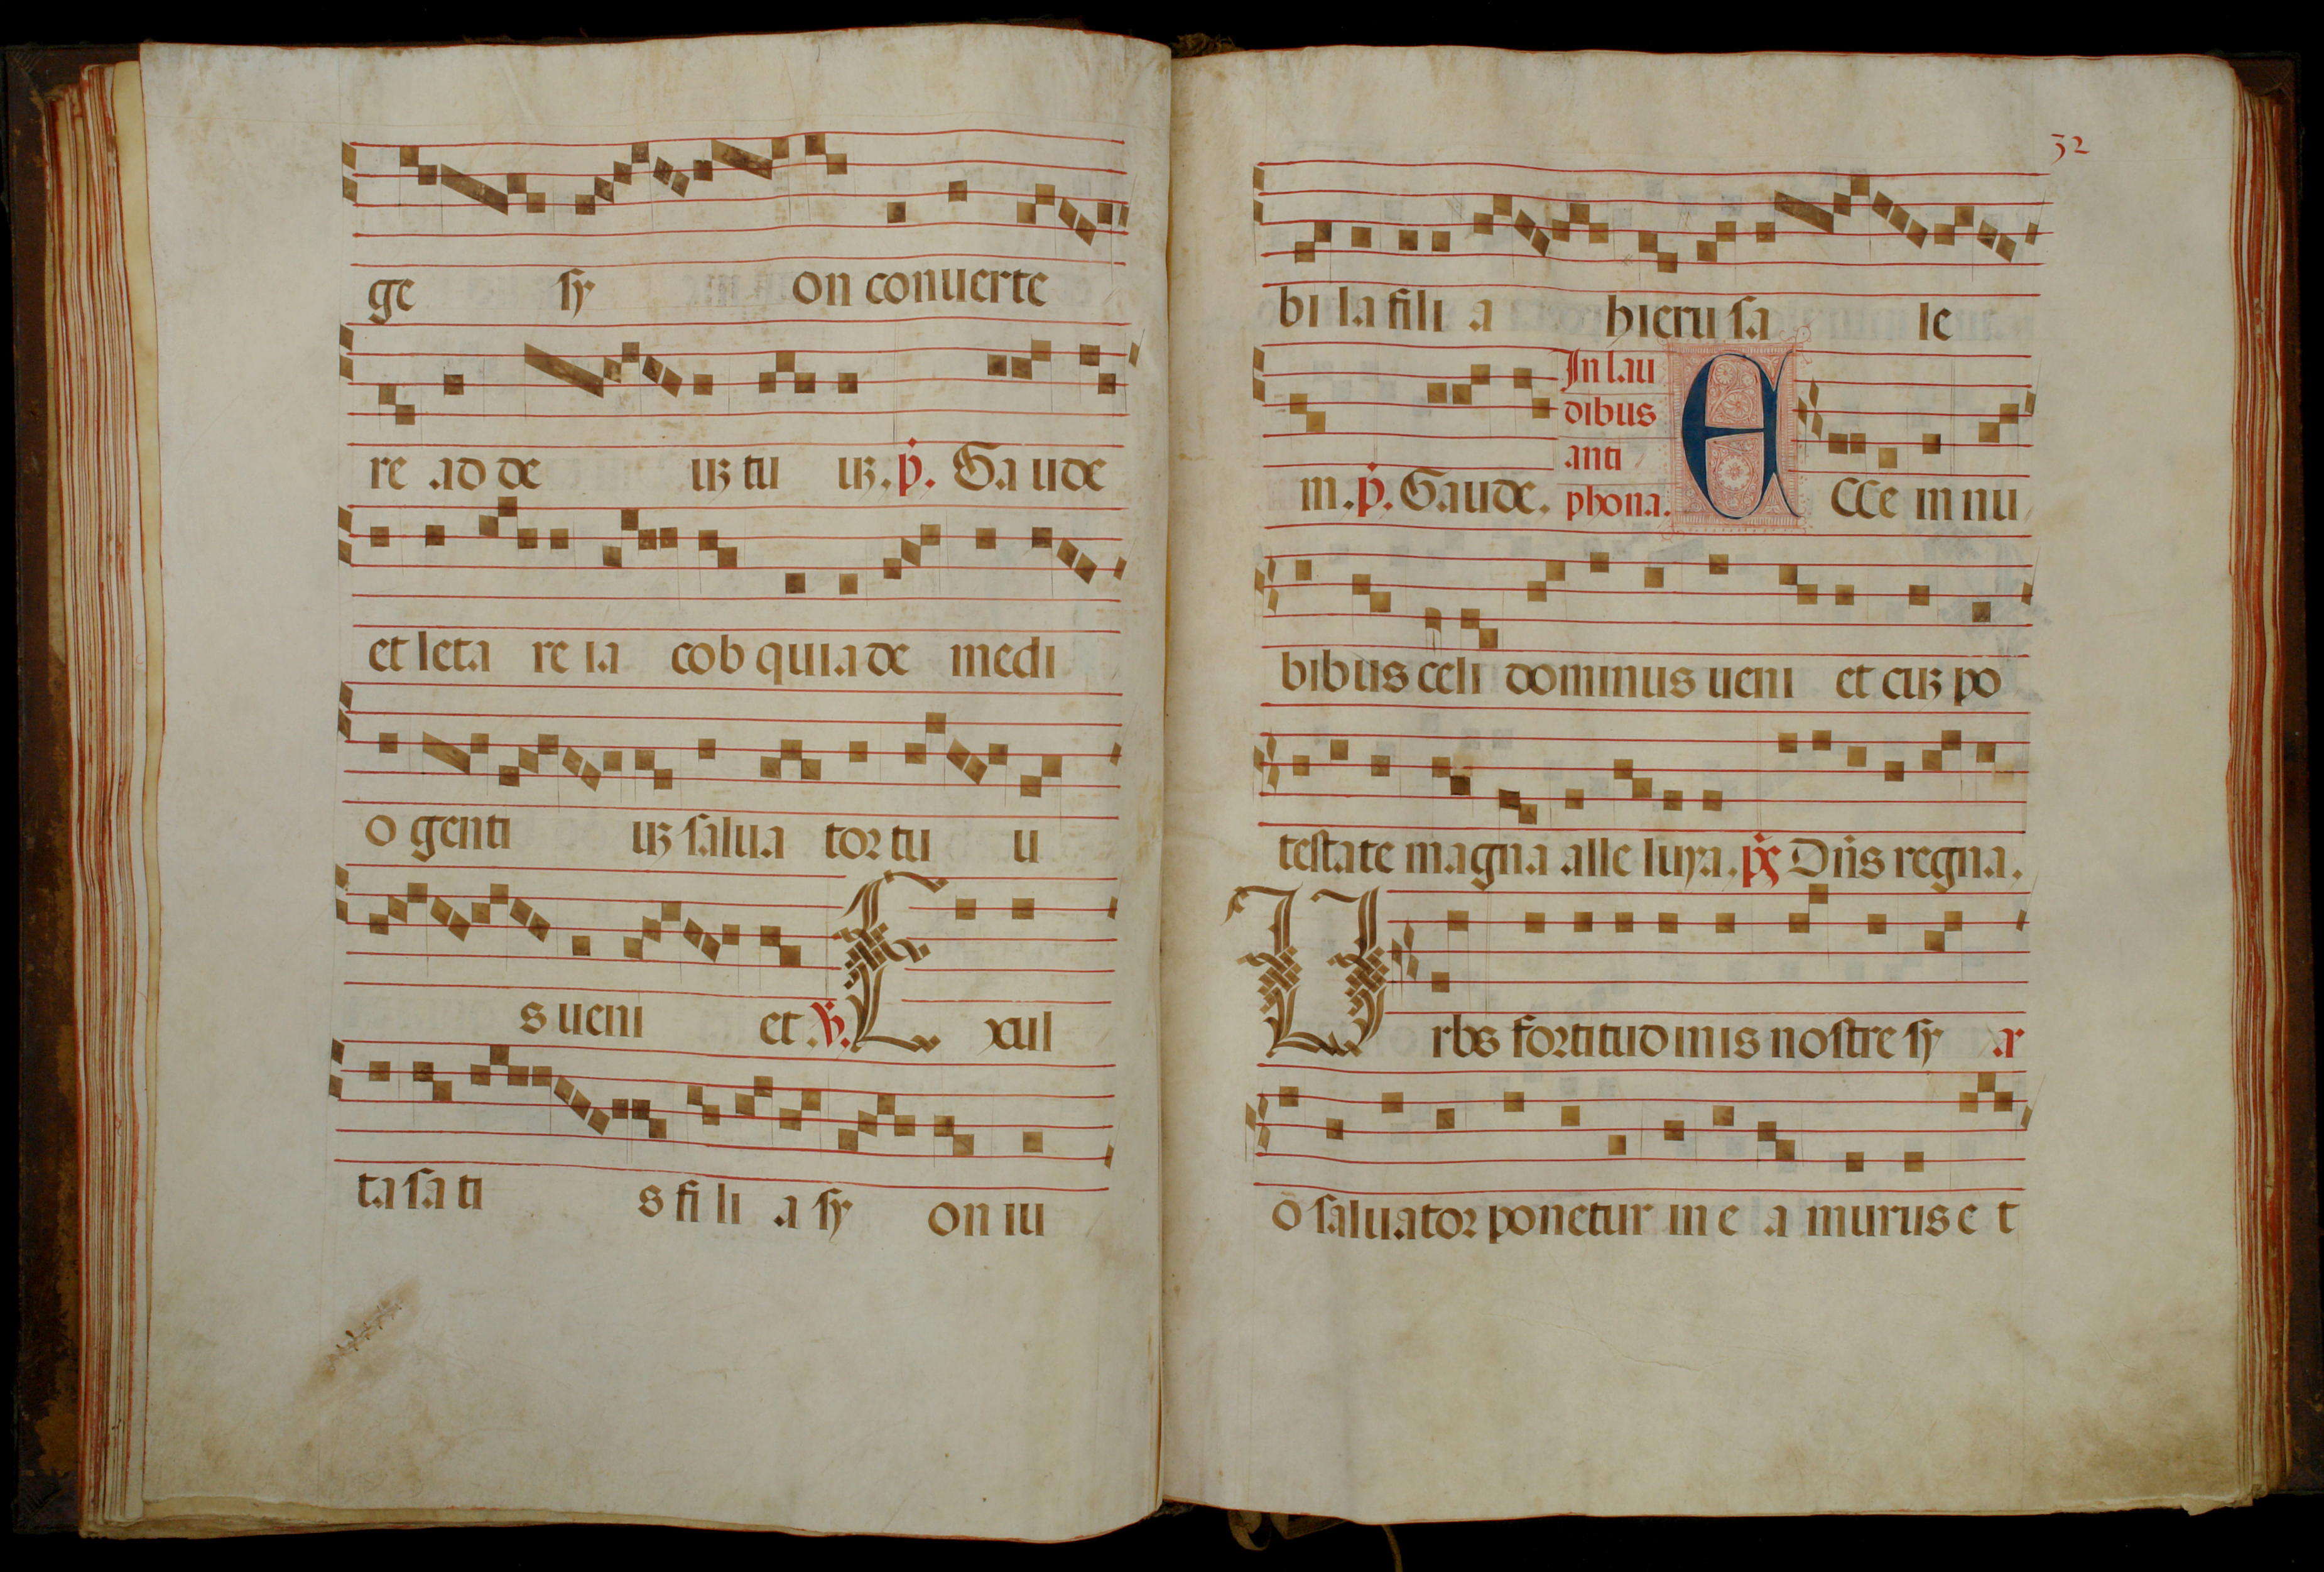 ge sy on conuerte
re ad de uꝫ tu uꝫ. p̄. Gaude
et leta re ia cob quia de medi
o genti uꝫ salua tor tu u
s ueni et. ℣. Exul
ta sa ti s fi li a sy on iu
32
bi la fili a hieru sa le
m. p̄. Gaude.
In lau
dibus
anti
phona.
ECCe in nu
bibus celi dominus ueni et cuꝫ po
testate magna alle luya. p̄s Dn̄s regna.
Urbs fortitudinis nostre sy a
o saluator ponetur in e a murus e t